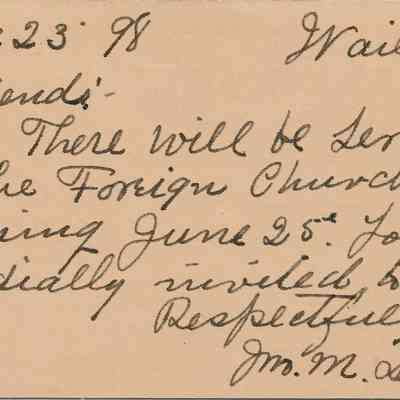 23 98 Wail
iends:-
There will be Ser
he Foreign Church
ning June 25th. Yo
dially invited to
Respectful
Jno. M.